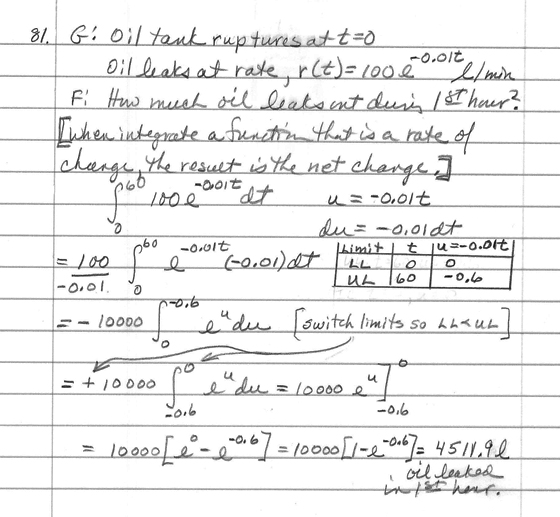 81. G: Oil tank ruptures at t=0
Oil leaks at rate, r(t) = 100 e^{-0.01t} l/min
F: How much oil leaks out durin 1st hour?
[when integrate a function that is a rate of
change, the result is the net change.]
∫_0^{60} 100 e^{-0.01t} dt u = -0.01t
du = -0.01dt
= 100/-0.01 ∫_0^{60} e^{-0.01t} (-0.01) dt
Limit | t | u=-0.01t
LL | 0 | 0
UL | 60 | -0.6
= - 10000 ∫_0^{-0.6} e^u du [switch limits so LL<UL]
= + 10000 ∫_{-0.6}^0 e^u du = 10000 e^u ]_{-0.6}^0
= 10000 [e^0 - e^{-0.6}] = 10000 [1 - e^{-0.6}] = 4511.9 l
oil leaked
in 1st hour.